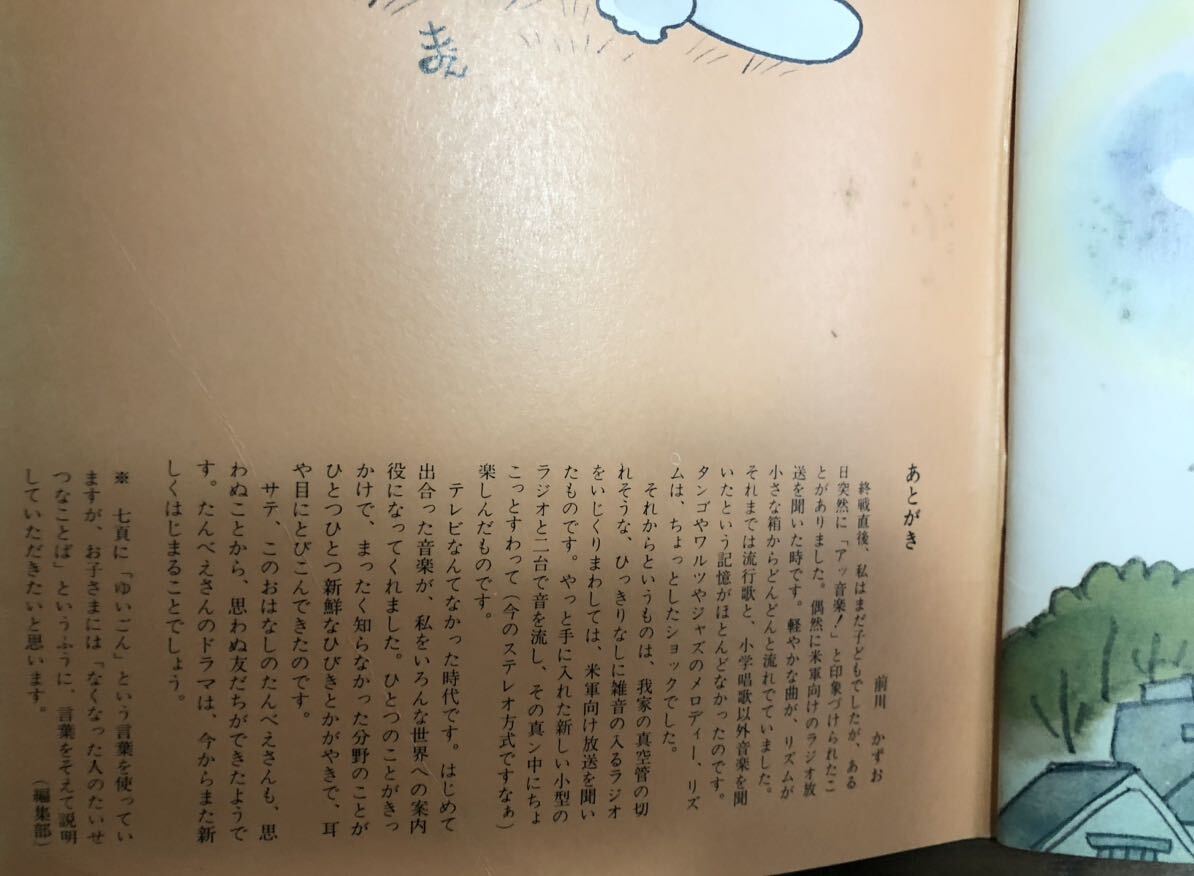 あとがき
前川 かずお
終戦直後、私はまだ子どもでしたが、ある
日突然に「アッ音楽!」と印象づけられたこ
とがありました。偶然に米軍向けのラジオ放
送を聞いた時です。軽やかな曲が、リズムが
小さな箱からどんどんと流れでていました。
それまでは流行歌と、小学唱歌以外音楽を聞
いたという記憶がほとんどなかったのです。
タンゴやワルツやジャズのメロディー、リズ
ムは、ちょっとしたショックでした。
それからというものは、我家の真空管の切
れそうな、ひっきりなしに雑音の入るラジオ
をいじくりまわしては、米軍向け放送を聞い
たものです。やっと手に入れた新しい小型の
ラジオと二台で音を流し、その真ン中にちょ
こっとすわって(今のステレオ方式ですなぁ)
楽しんだものです。
テレビなんてなかった時代です。はじめて
出合った音楽が、私をいろんな世界への案内
役になってくれました。ひとつのことがきっ
かけで、まったく知らなかった分野のことが
ひとつひとつ新鮮なひびきとかがやきで、耳
や目にとびこんできたのです。
サテ、このおはなしのたんべえさんも、思
わぬことから、思わぬ友だちができたようで
す。たんべえさんのドラマは、今からまた新
しくはじまることでしょう。
※ 七頁に「ゆいごん」という言葉を使ってい
ますが、お子さまには「なくなった人のたいせ
つなことば」というふうに、言葉をそえて説明
していただきたいと思います。
(編集部)